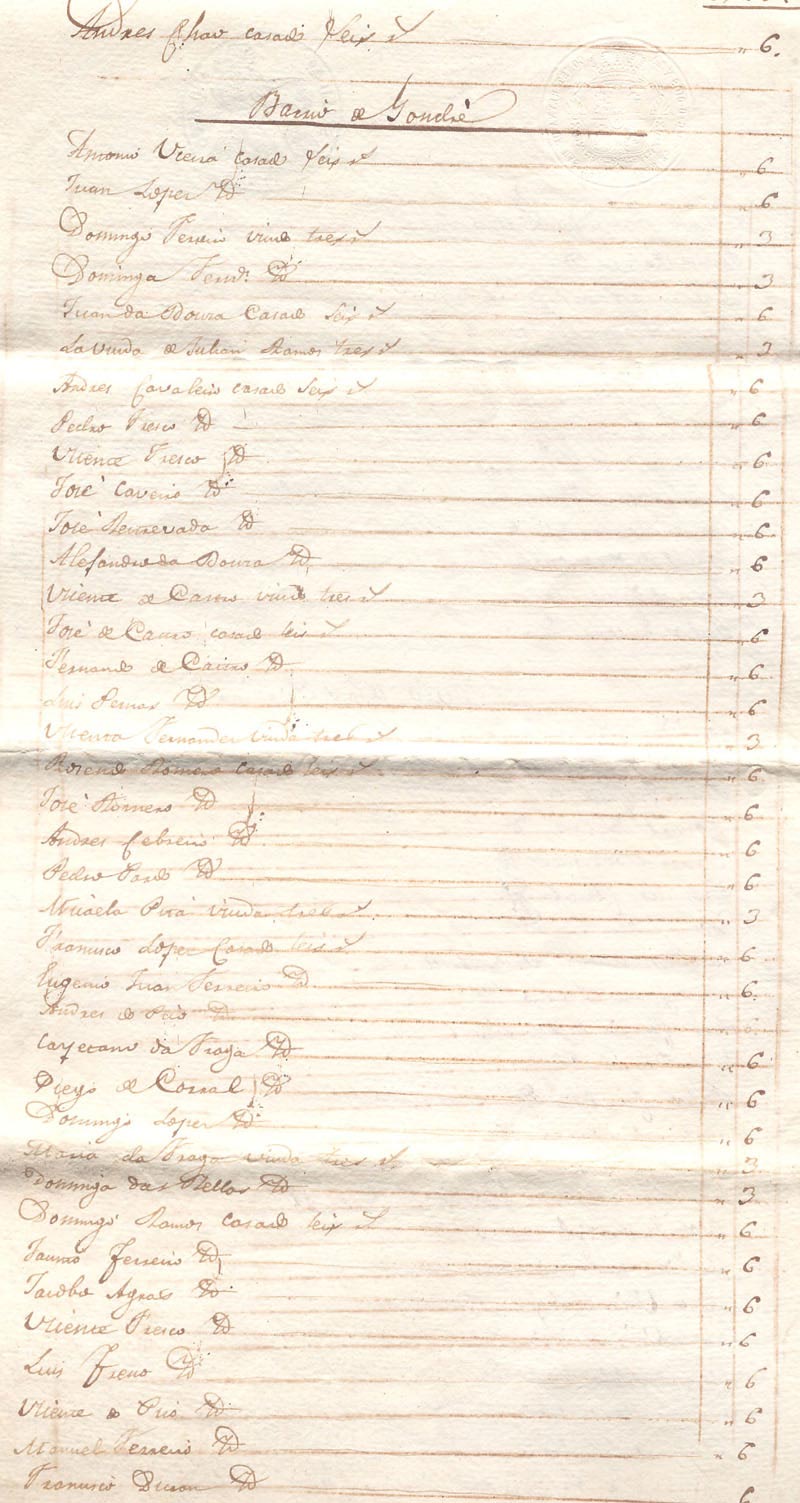 Andres Chao casado seis r " 6.
Barrio de Gondré
Antonio Vieira casado seis r " 6
Juan Lopez Yd " 6
Domingo Ferreiro viudo tres r " 3
Dominga Ferrn. Yd " 3
Juan da Boura Casado seis r " 6
La viuda de Julian Ramos tres r " 3
Andres Cavaleiro casado seis r " 6
Pedro Fresco Yd " 6
Vicente Fresco Yd " 6
José Caveiro Yd " 6
José Yd " 6
Alejandro da Boura Yd " 6
Vicente de Castro viudo tres r " 3
José de Castro casado seis r " 6
Fernando de Castro Yd " 6
Luis Pernas Yd " 6
Vicenta Fernandez viuda tres r " 3
Rosendo Romero casado seis r " 6
José Romero Yd " 6
Andres Cebreiro Yd " 6
Pedro Pardo Yd " 6
Micaela viuda tres r " 3
Francisco Lopez Casado seis r " 6
Eugenio Juan Ferreiro Yd " 6
Andres de Yd 6
Cayetano da Fraga Yd " 6
Diego de Corral Yd " 6
Domingo Lopez Yd " 6
Maria da Fraga viuda tres r " 3
Dominga das Yd " 3
Domingo Ramos casado seis r " 6
Ferreiro Yd " 6
Jacobo Agras Yd " 6
Vicente Fresco Yd " 6
Luis Yd " 6
Vicente de Yd " 6
Manuel Ferreiro Yd " 6
Francisco Yd 6